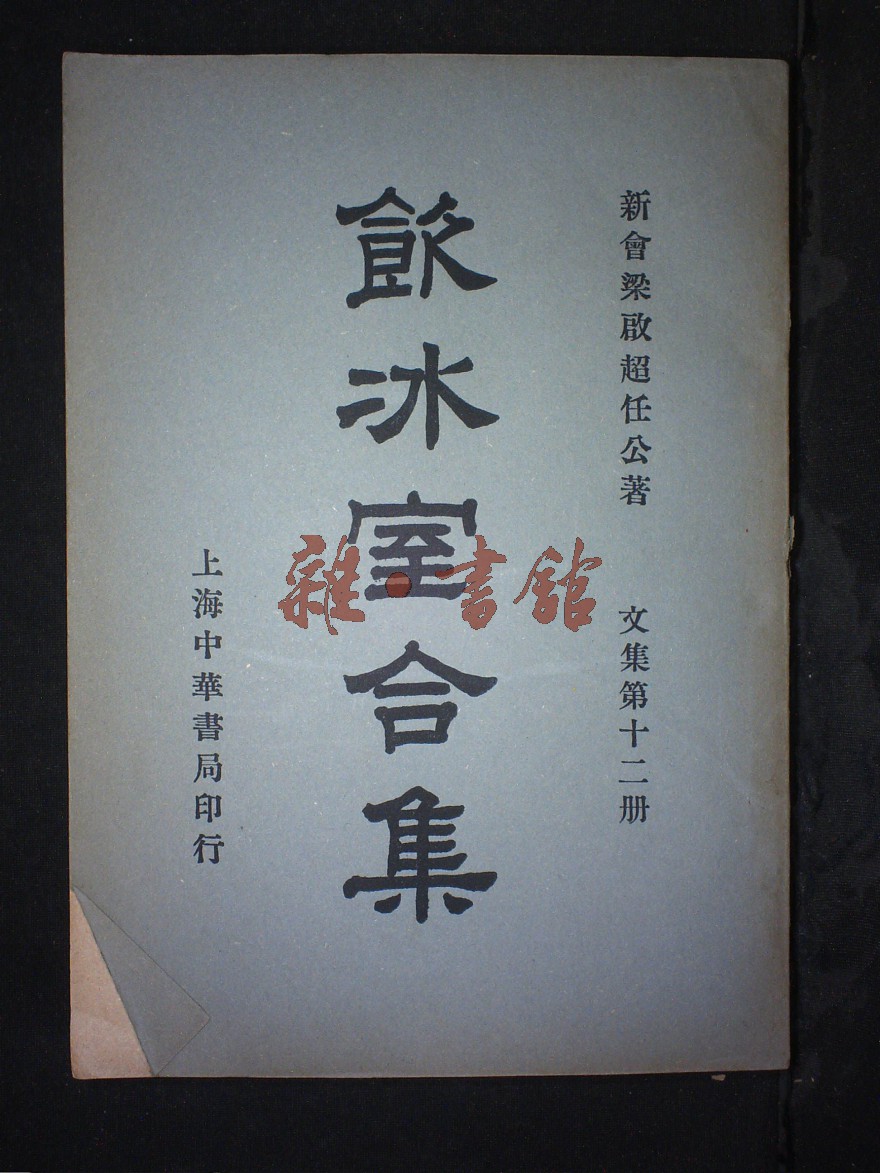 新會梁啟超任公著
文集第十二册
飲冰室合集
上海中華書局印行
雜·書館